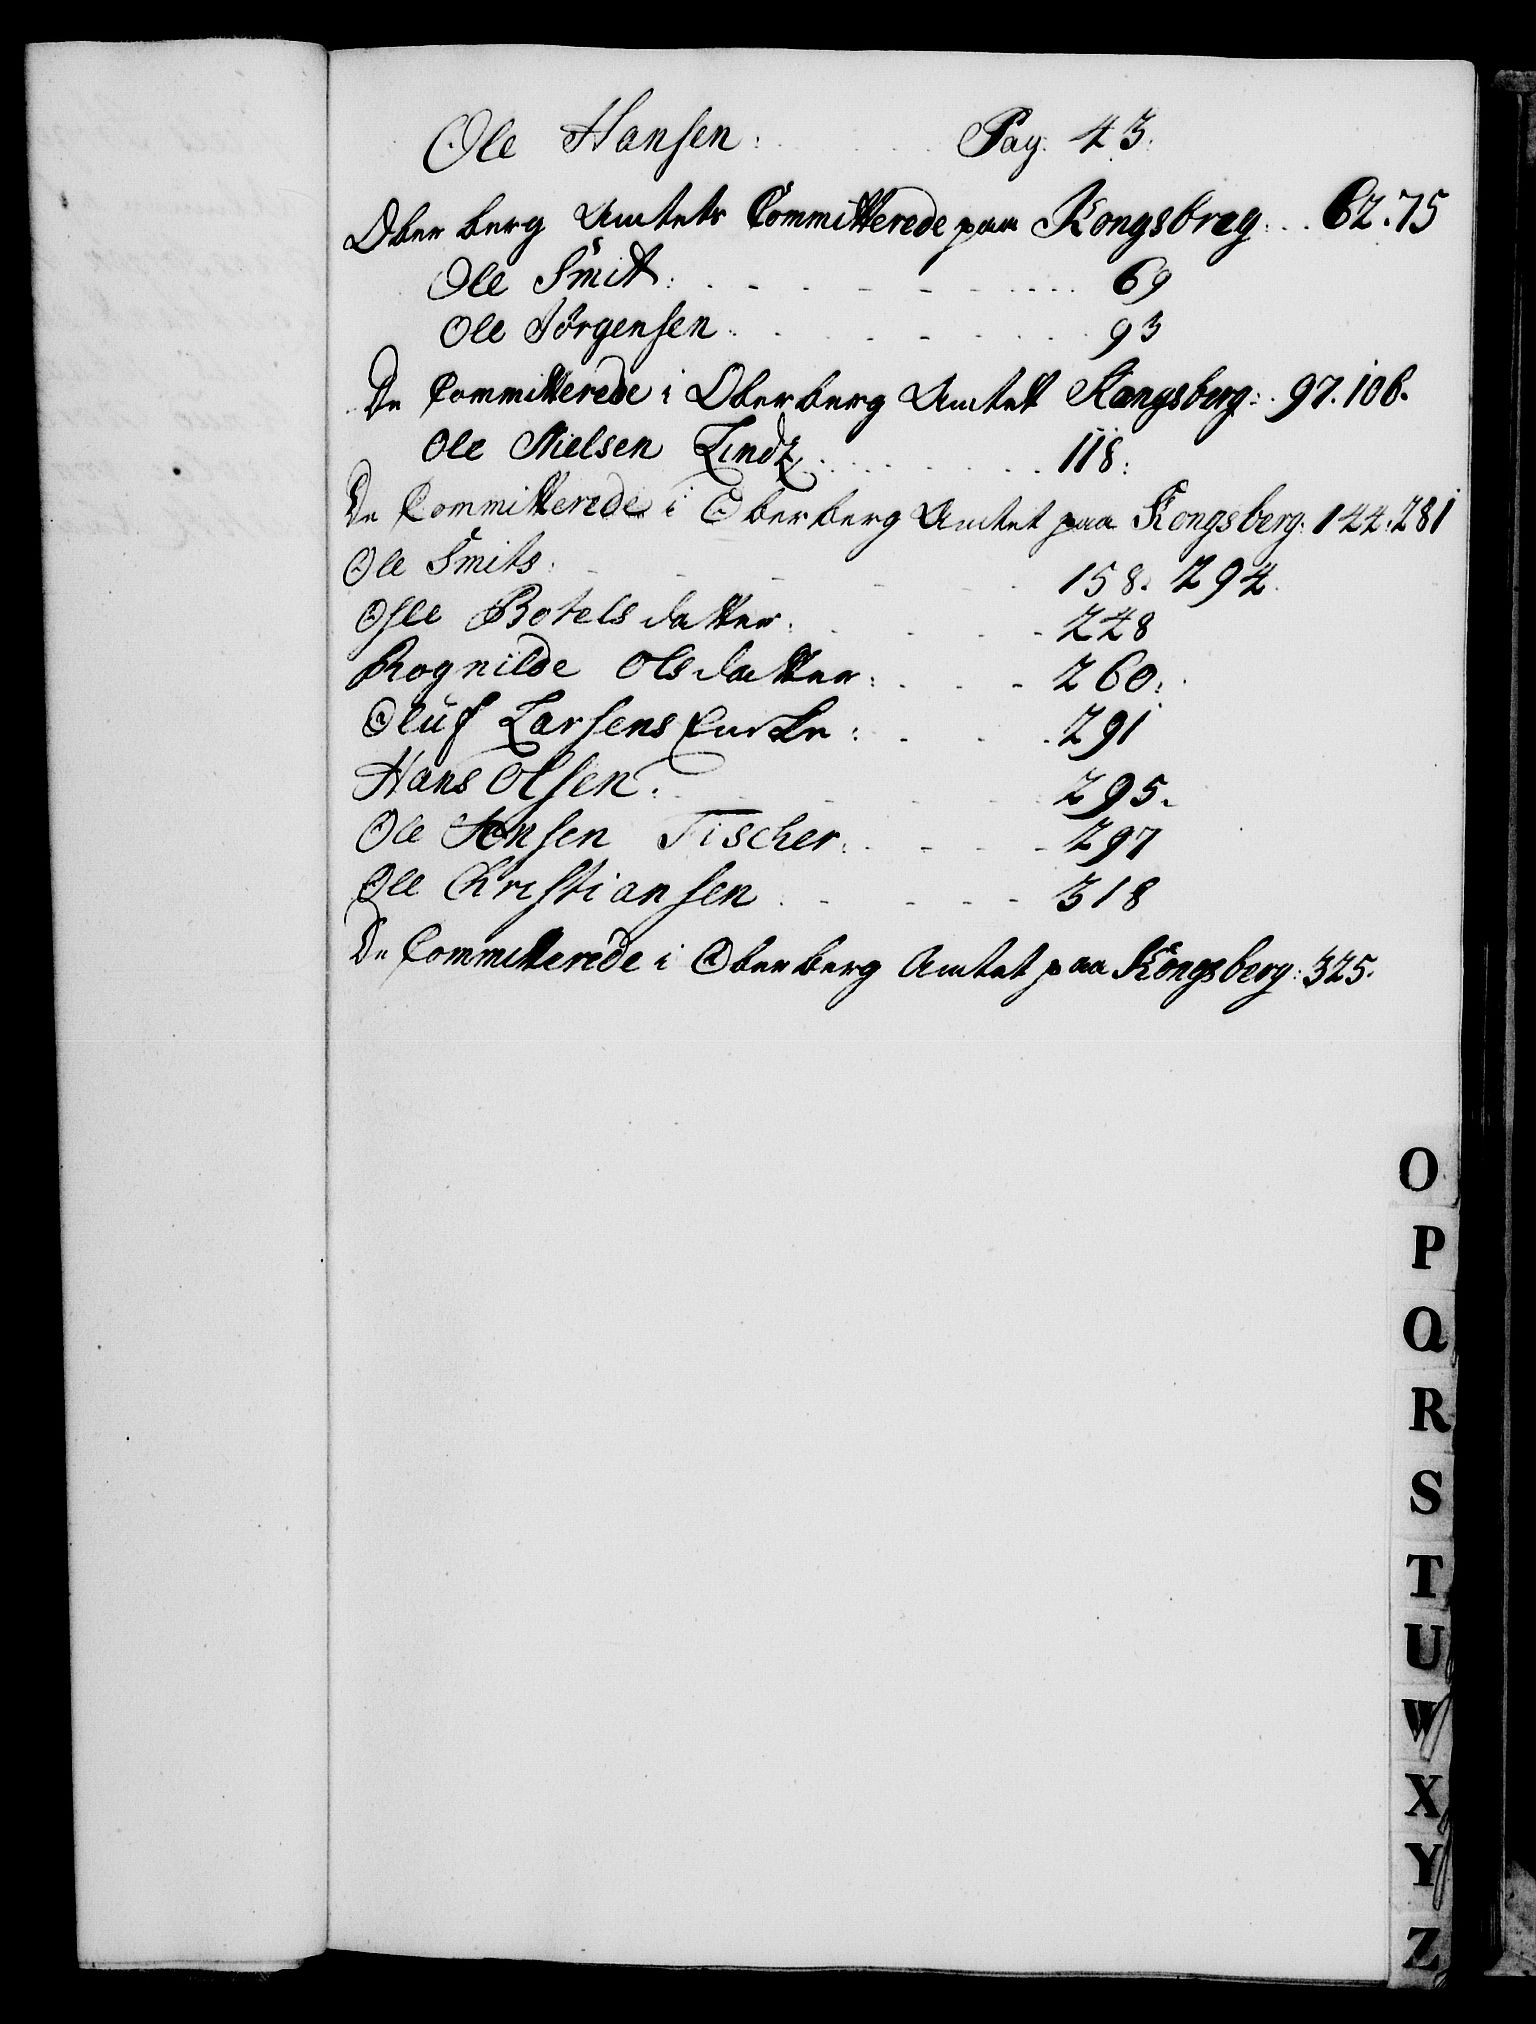 Ole Hansen: Pag: 43.
Oberberg Amtets Committerede paa Kongsbreg: 62.75
Ole Smit: 69
Ole Jørgensen: 93
De Committerede i Oberberg Amtet Kongsberg: 97.106.
Ole Nielsen Lindz 118:
De Committerede i Oberberg Amtet paa Kongsberg: 144.281
Ole Smits: 158. 294.
Osle Botels datter: 228
Rognilde Olsdatter: 260:
Oluf Larsens Encke: 291
Hans Olsen: 295.
Ole Jensen Fischer: 297
Ole Christiansen 318
De Committerede i Oberberg Amtet paa Kongsberg: 325.
O
P
Q
R
S
T
U
W
X
Y
Z